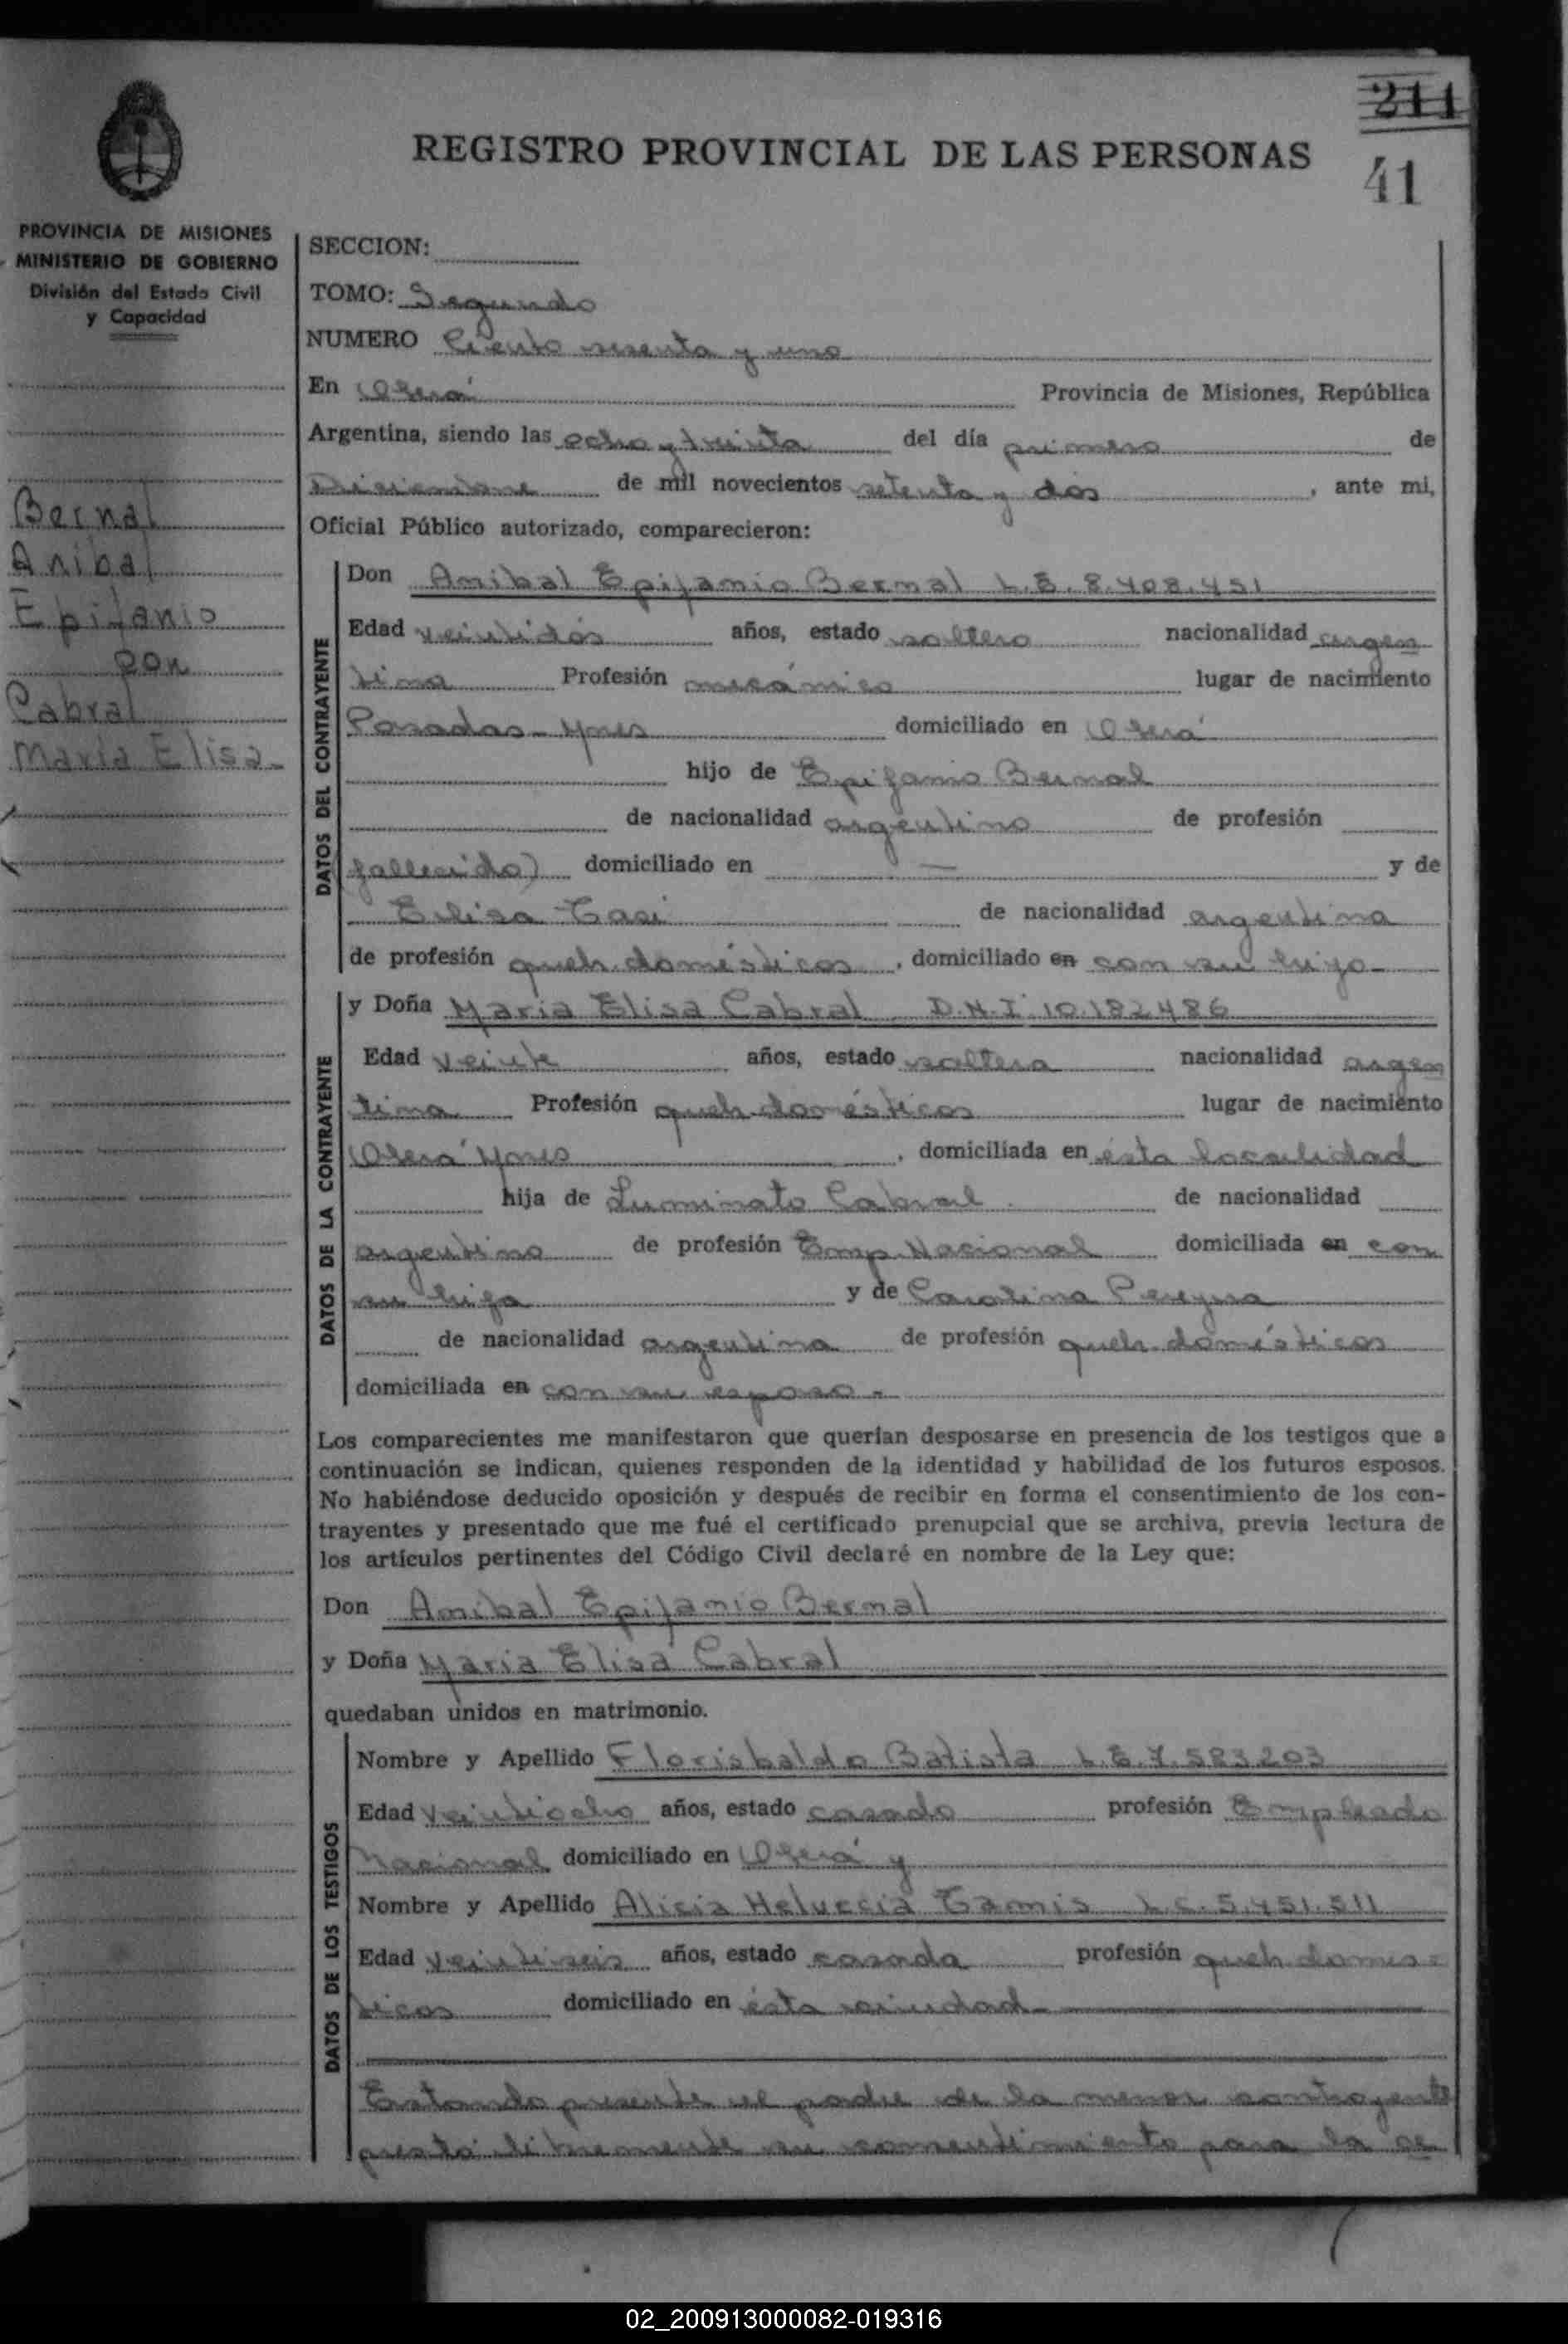 211
41
REGISTRO PROVINCIAL DE LAS PERSONAS
PROVINCIA DE MISIONES
MINISTERIO DE GOBIERNO
División del Estado Civil
y Capacidad
Bernal
Anibal
Epifanio
con
Cabral
María Elisa.
SECCION:
TOMO: Segundo
NUMERO Ciento sesenta y uno
En Oberá Provincia de Misiones, República
Argentina, siendo las ocho y treinta del día primero de
Diciembre de mil novecientos setenta y dos, ante mi,
Oficial Público autorizado, comparecieron:
DATOS DEL CONTRAYENTE
Don Anibal Epifanio Bernal L.E. 8.408.451
Edad veintidós años, estado soltero nacionalidad argen
tina Profesión mecánico lugar de nacimiento
Posadas-Mnes domiciliado en Oberá
hijo de Epifanio Bernal
de nacionalidad argentino de profesión
(fallecido) domiciliado en — y de
Elisa de nacionalidad argentina
de profesión queh. domésticos, domiciliado en con su hijo-
DATOS DE LA CONTRAYENTE
y Doña María Elisa Cabral D.N.I. 10.182.486
Edad veinte años, estado soltera nacionalidad argen
tina Profesión queh. domésticos lugar de nacimiento
Oberá Mnes, domiciliada en ésta localidad
hija de Luminato Cabral de nacionalidad
argentino de profesión Emp. Nacional domiciliada en con
su hija y de Carolina Pereyra
de nacionalidad argentina de profesión queh. domésticos
domiciliada en con su esposo.-
Los comparecientes me manifestaron que querían desposarse en presencia de los testigos que a
continuación se indican, quienes responden de la identidad y habilidad de los futuros esposos.
No habiéndose deducido oposición y después de recibir en forma el consentimiento de los con-
trayentes y presentado que me fué el certificado prenupcial que se archiva, previa lectura de
los artículos pertinentes del Código Civil declaré en nombre de la Ley que:
Don Anibal Epifanio Bernal
y Doña María Elisa Cabral
quedaban unidos en matrimonio.
DATOS DE LOS TESTIGOS
Nombre y Apellido Florisbaldo Batista L.E. 7.583.203
Edad veintiocho años, estado casado profesión Empleado
Nacional domiciliado en Oberá y
Nombre y Apellido Alicia Helvecia L.C. 5.451.511
Edad veintiseis años, estado casada profesión queh domés-
ticos domiciliado en ésta ciudad
Estando presente el padre de la menor contrayente
prestó libremente su consentimiento para la ce
02_200913000082-019316